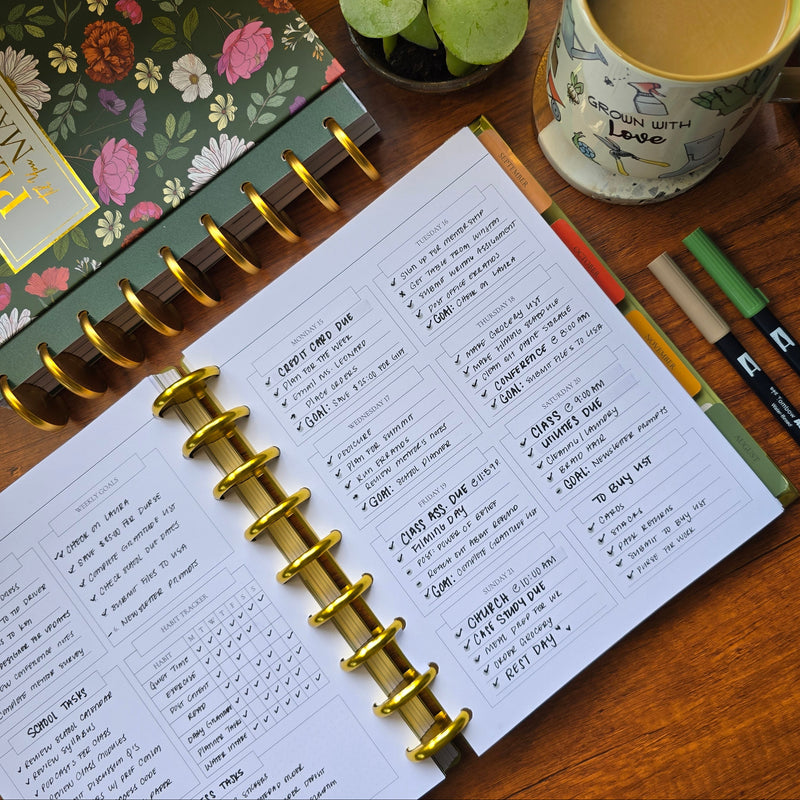 GROWN WITH
Love
SEPTEMBER
OCTOBER
NOVEMBER
AUGUST
WEEKLY GOALS
CHECK ON LAURA
SAVE $25.00 PER PURSE
COMPLETE GRATITUDE LIST
CHECK SCHOOL DUE DATES
SUBMIT FILES TO USA
NEWSLETTER PROMPTS
TO TIP DRIVER
DESIGNER FOR UPDATES
CONFERENCE NOTES
COMPLETE MENTOR SURVEY
SCHOOL TASKS
REVIEW SCHOOL CALENDAR
REVIEW SYLLABUS
PODCASTS FOR CLASS
REVIEW CLASS MODULES
DISCUSSION Q'S
HABIT TRACKER
HABIT M T W T F S S
QUIET TIME
EXERCISE
POST CONTENT
READ
DAILY GRATITUDE
PLANNER TASKS
WATER INTAKE
TASKS
STICKERS
MONDAY 15
CREDIT CARD DUE
PLAN FOR THE WEEK
EMAIL MS. LEONARD
PLACE ORDERS
GOAL: SAVE $25.00 FOR GYM
TUESDAY 16
SIGN UP FOR MENTORSHIP
GET TABLE FROM WINSTON
SUBMIT WRITING ASSIGNMENT
POST OFFICE ERRANDS
GOAL: CHECK ON LAURA
WEDNESDAY 17
PEDICURE
PLAN FOR SUMMIT
RUN ERRANDS
REVIEW MENTOR'S NOTES
GOAL: SCHOOL PLANNER
THURSDAY 18
MAKE GROCERY LIST
MAKE FILMING SCHEDULE
CLEAN OUT PHONE STORAGE
CONFERENCE @ 8:00 AM
GOAL: SUBMIT FILES TO USA
FRIDAY 19
CLASS ASS. DUE @ 11:59P
FILMING DAY
POST: POWER OF BELIEF
REACH OUT ABOUT REFUND
GOAL: COMPLETE GRATITUDE LIST
SATURDAY 20
CLASS @ 9:00 AM
UTILITIES DUE
CLEANING/LAUNDRY
BRAID HAIR
GOAL: NEWSLETTER PROMPTS
SUNDAY 21
CHURCH @ 10:00 AM
CASE STUDY DUE
MEAL PREP FOR WK
ORDER GROCERY
REST DAY
TO BUY LIST
CARDS
SNACKS
PACK RETURNS
SUBMIT TO BUY LIST
PURSE FOR WORK